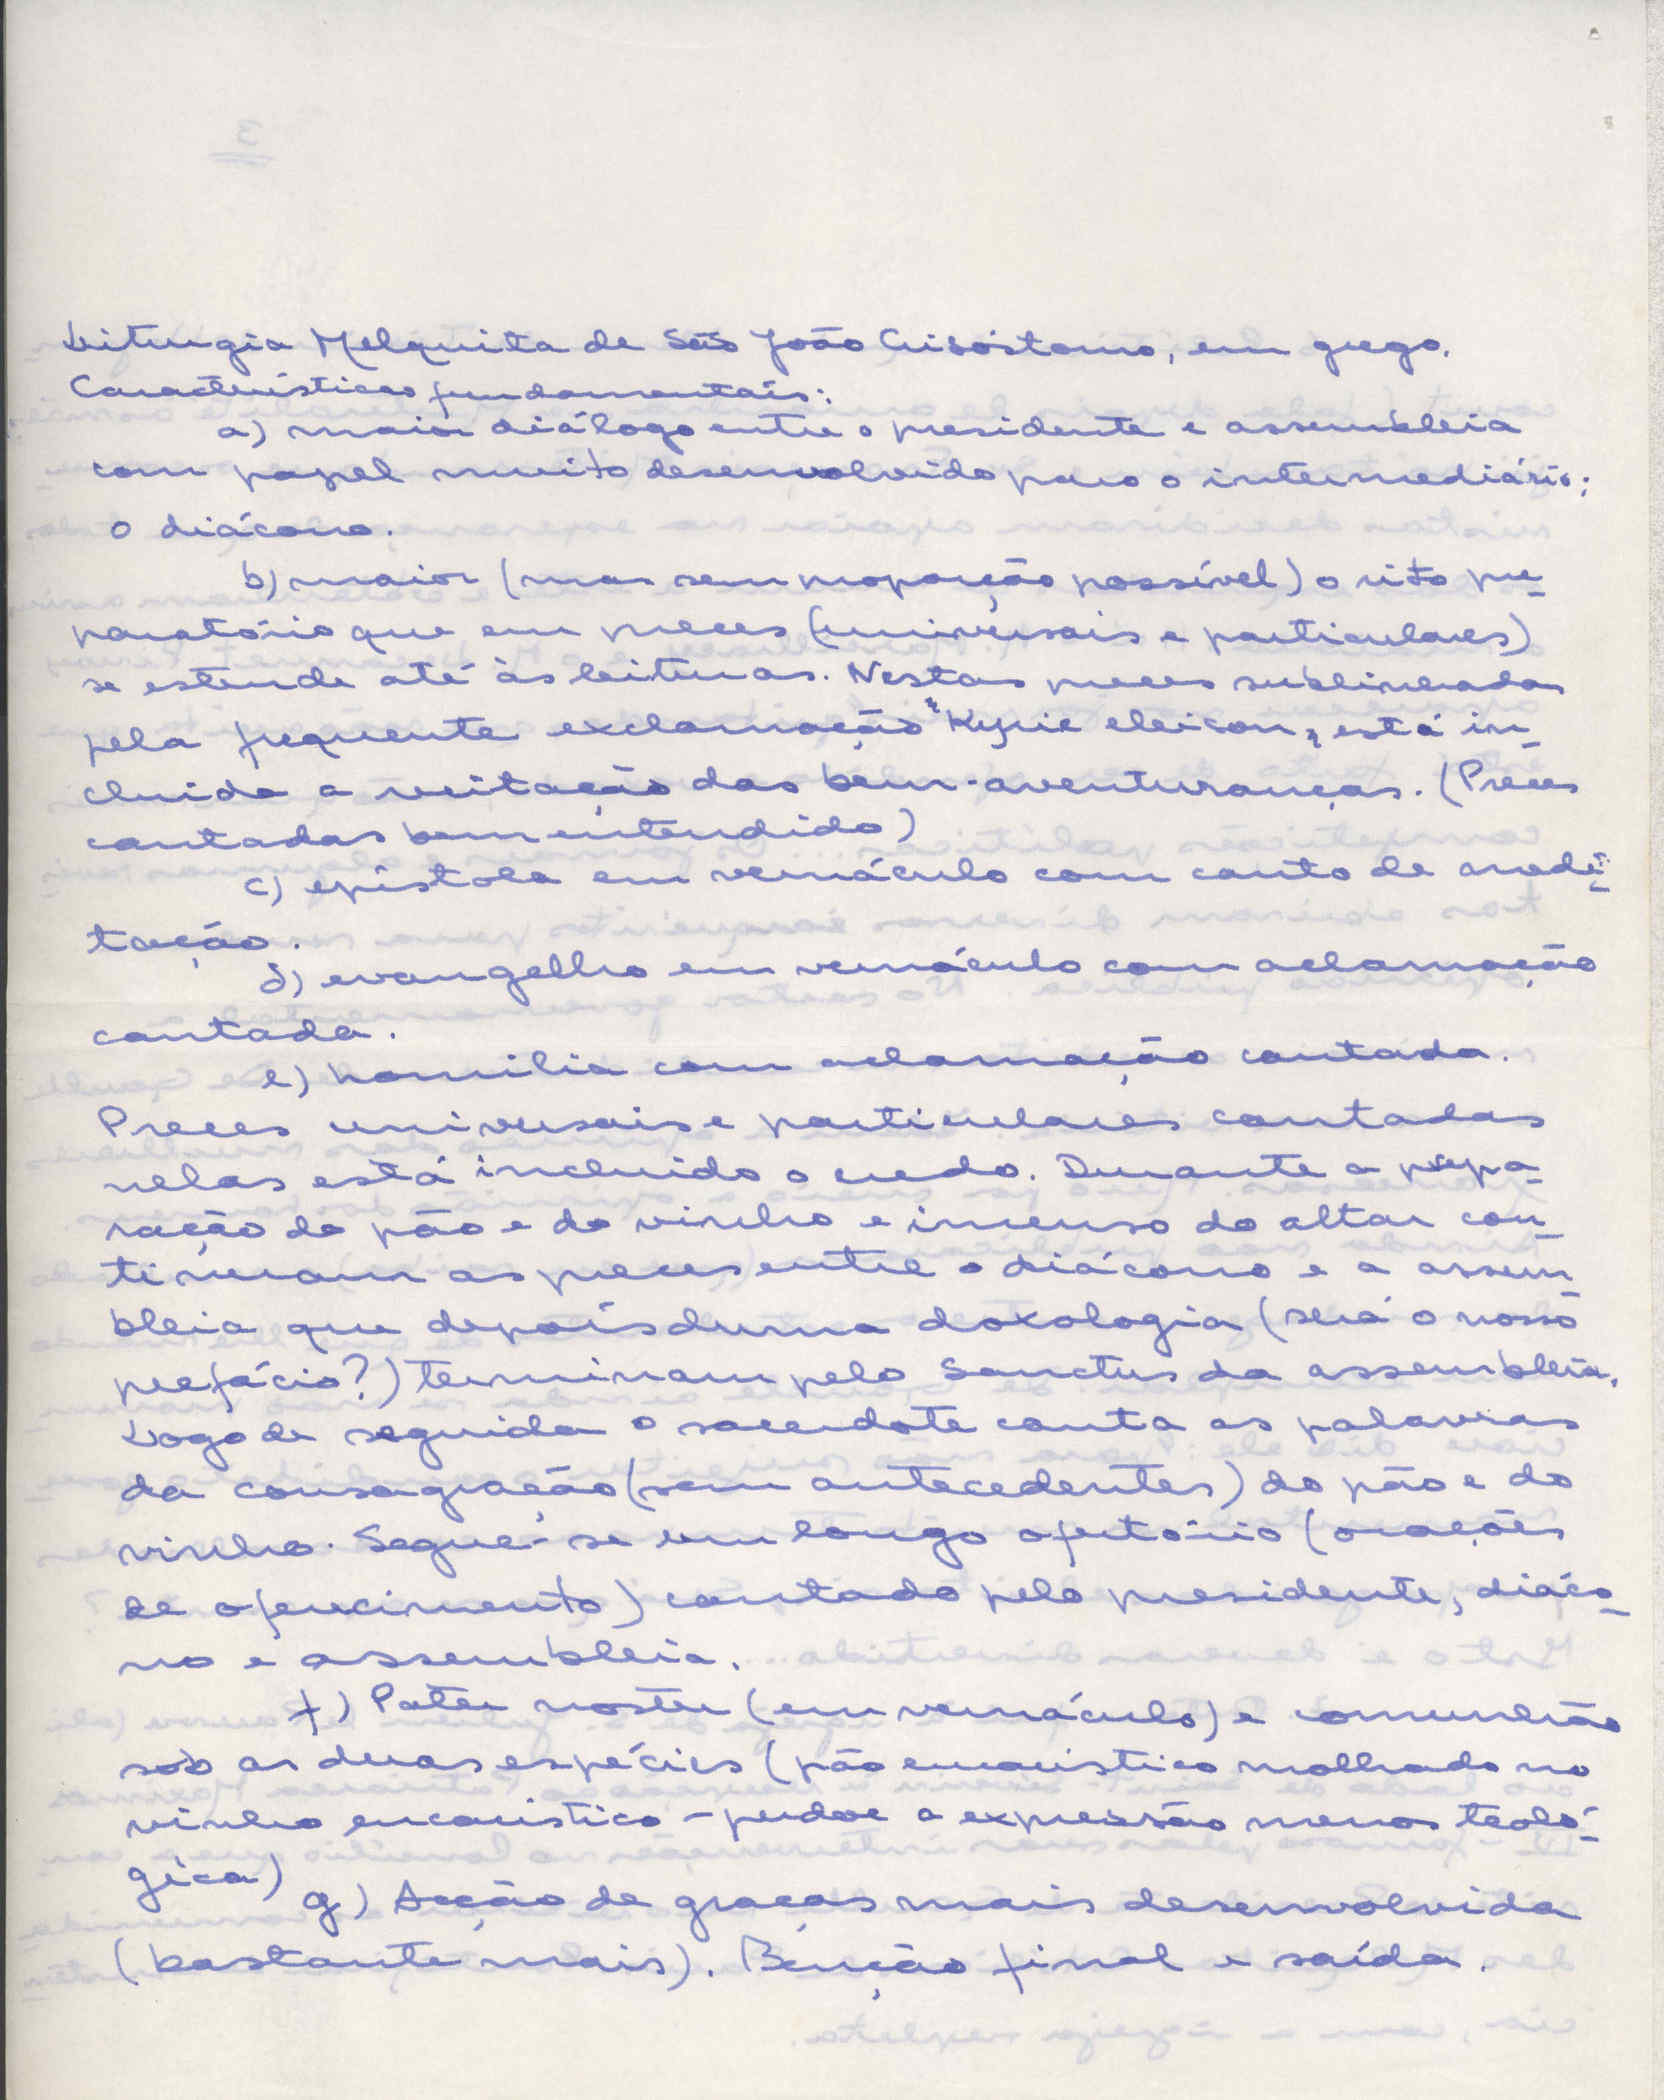 Liturgia Melquita de São João Crisóstomo, em grego.
Características fundamentais:
a) maior diálogo entre o presidente e assembleia
com papel muito desenvolvido para o intermediário:
o diácono.
b) maior (mas sem proporção possível) o rito pre-
paratório que em preces (universais e particulares)
se estende até às leituras. Nestas preces sublinhadas
pela frequente exclamação "Kyrie eleison" está in-
cluida a recitação das bem-aventuranças. (Preces
cantadas bem entendido)
c) epistola em vernáculo com canto de medi-
tação.
d) evangelho em vernáculo com aclamação
cantada.
e) homilia com aclamação cantada.
Preces universais e particulares cantadas
nelas está incluido o credo. Durante a prepa-
ração do pão e do vinho e incenso do altar con-
tinuam as preces entre o diácono e a assem-
bleia que depois duma doxologia (será o nosso
prefácio?) terminam pelo Sanctus da assembleia.
Logo de seguida o sacerdote canta as palavras
da consagração (sem antecedentes) do pão e do
vinho. Segue-se um longo ofertório (orações
de oferecimento) cantado pelo presidente, diáco-
no e assembleia.
f) Pater noster (em vernáculo) e comunhão
sob as duas espécies (pão eucaristico molhado no
vinho eucaristico - perdoe a expressão menos teoló-
gica)
g) Acção de graças mais desenvolvida
(bastante mais). Benção final e saída.